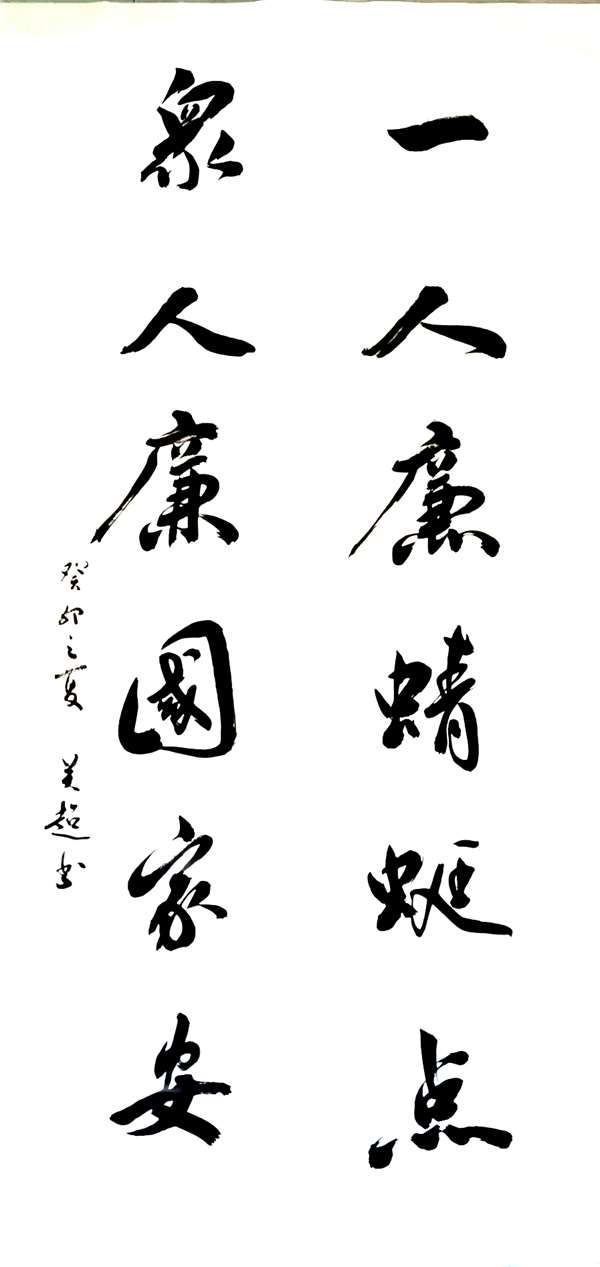 一人廉蜻蜓点
眾人廉國家安
癸卯之夏 美超书